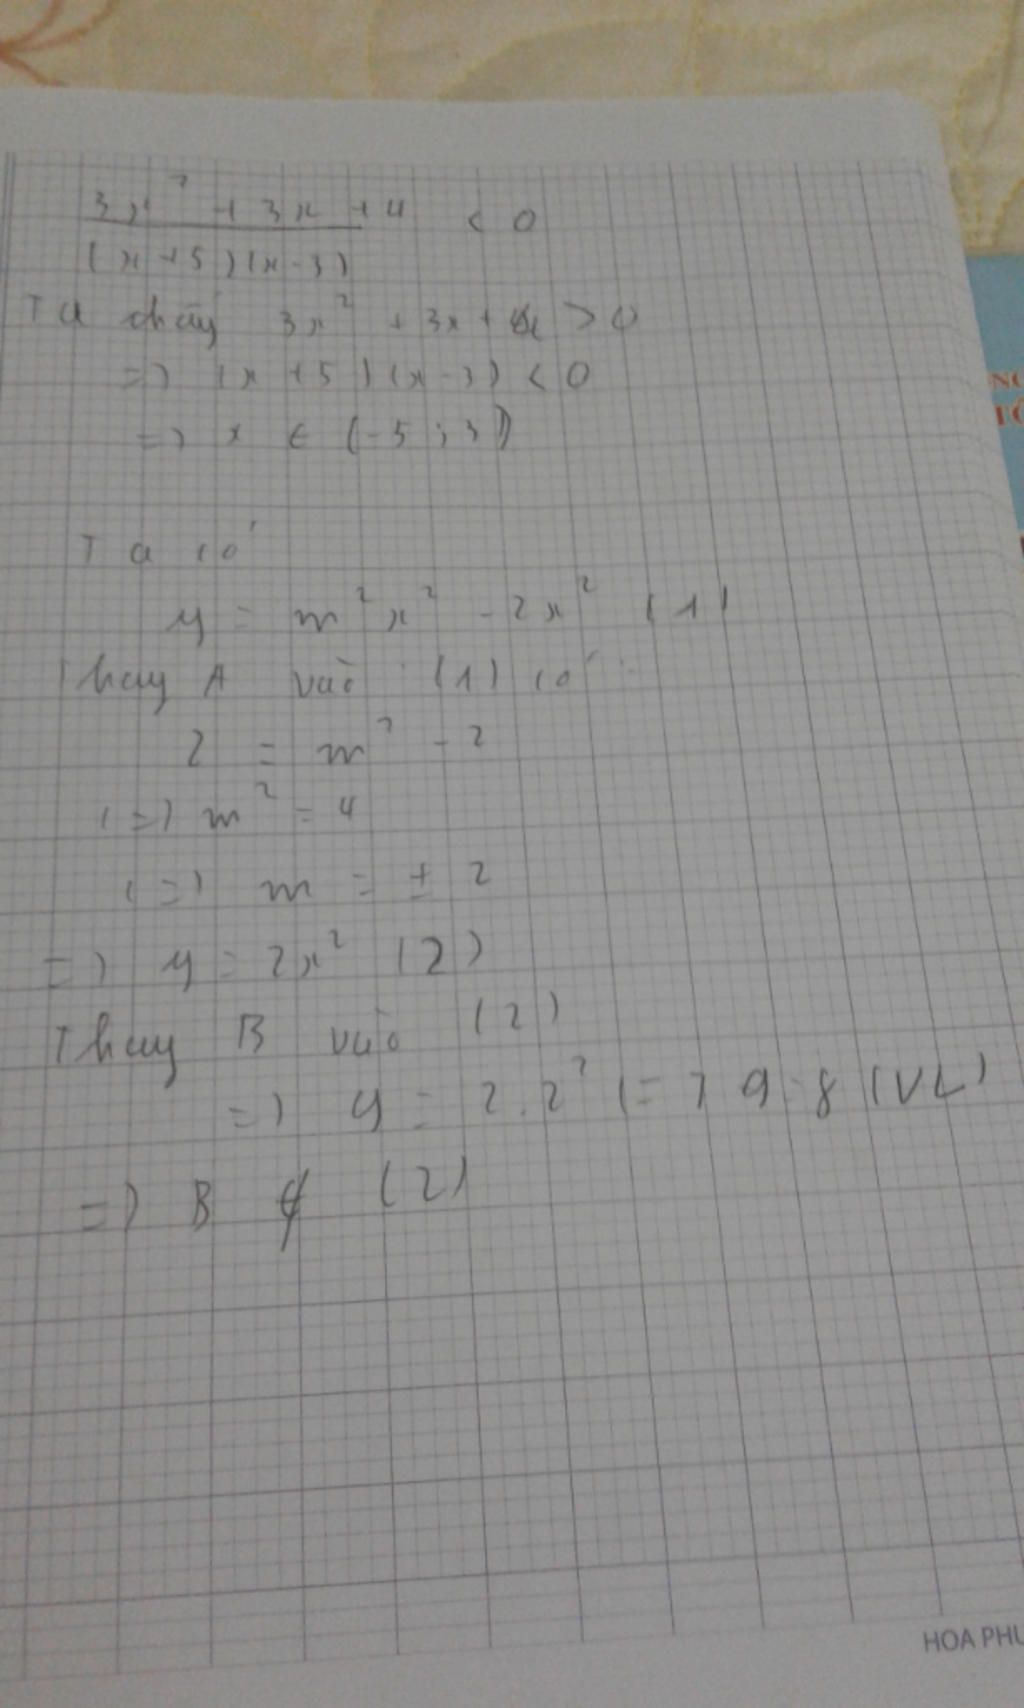 3x² + 3x + 4 < 0
(x+5)(x-3)
Ta thấy 3x² + 3x + 4 > 0
=> (x+5)(x-3) < 0
=> x ∈ (-5;3)
Ta có
y = m²x² - 2x² (1)
Thay A vào (1) có
2 = m² - 2
<=> m² = 4
<=> m = ± 2
=> y = 2x² (2)
Thay B vào (2)
=> y = 2.2² <=> 9 = 8 (VL)
=> B ∉ (2)
HOA PHƯ